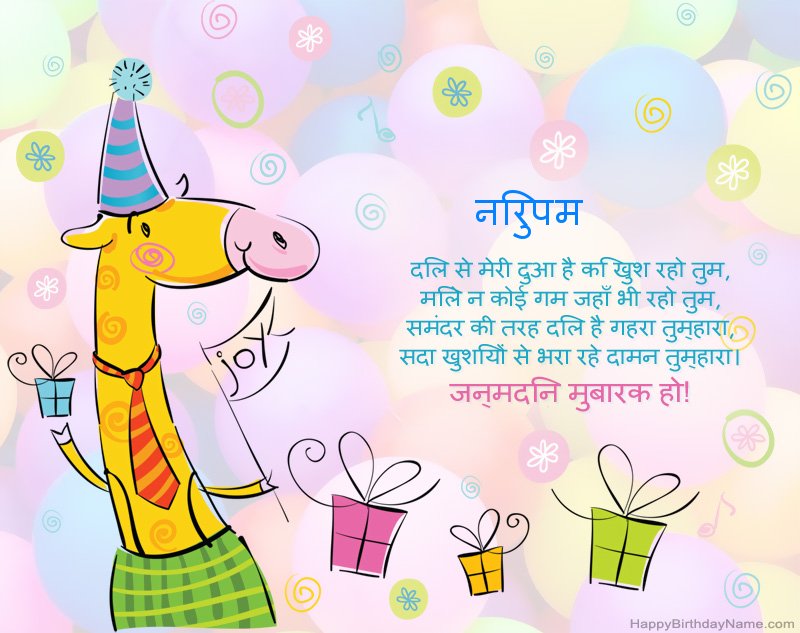 नरिुपम
दलि से मेरी दुआ है कि खुश रहो तुम,
मलिे न कोई गम जहाँ भी रहो तुम,
समंदर की तरह दलि है गहरा तुम्हारा,
सदा खुशयिों से भरा रहे दामन तुम्हारा।
जन्मदनि मुबारक हो!
joy
HappyBirthdayName.com